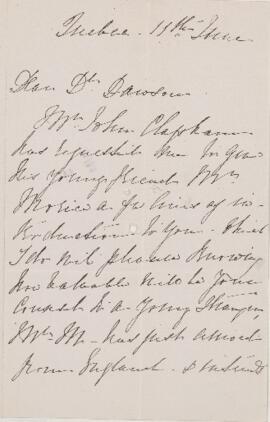 Quebec. 11th June
Dear Dr. Dawson
Mr. John Clapham
has requested me to give
his young friend Mr.
Morice a few lines of in-
troduction to you - this
I do with pleasure knowing
how valuable will be your
Counsel to a young stranger
Mr. M - has just arrived
from England.